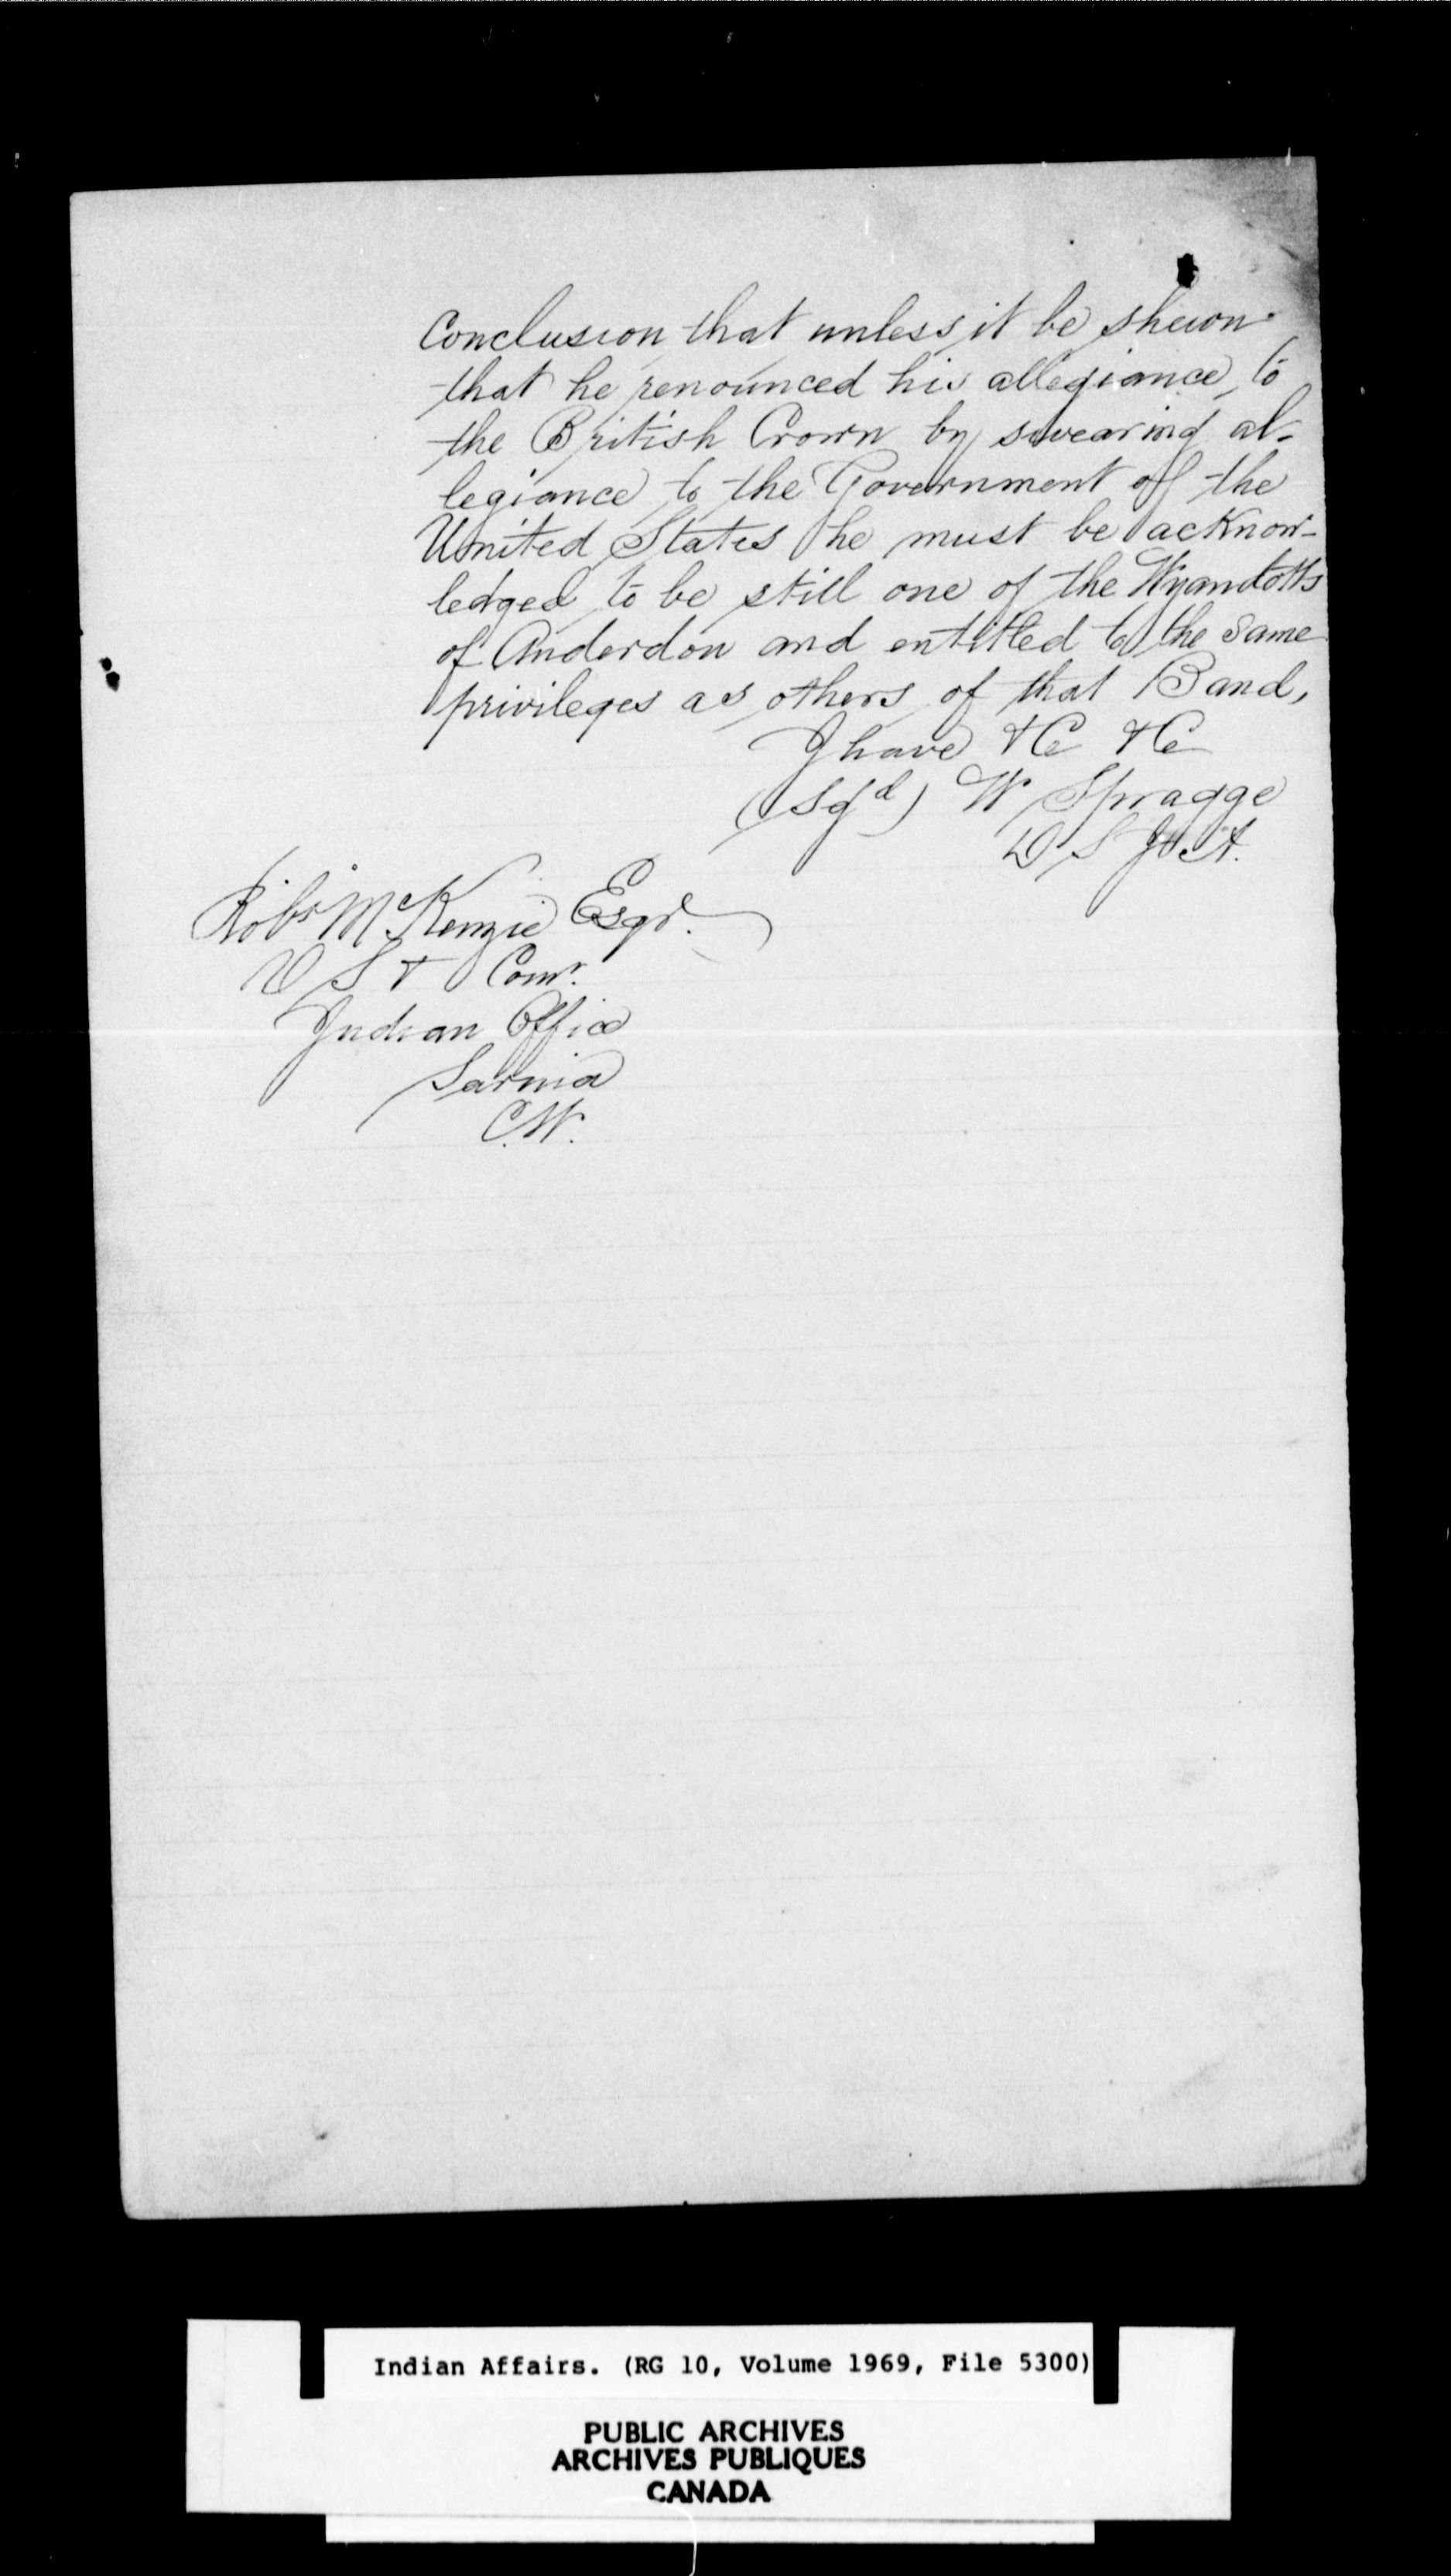 Conclusion that unless it be shewn
that he renounced his allegiance to
the British Crown by swearing al-
legiance to the Government of the
United States he must be acknow-
ledged to be still one of the Wyandotts
of Anderdon and entitled to the same
privileges as others of that Band,
I have &c &c
(Sgd) W Spragge
D S I A.
Robt McKenzie Esqr.
V S & Comr.
Indian Office
Sarnia
C.W.
Indian Affairs. (RG 10, Volume 1969, File 5300)
PUBLIC ARCHIVES
ARCHIVES PUBLIQUES
CANADA